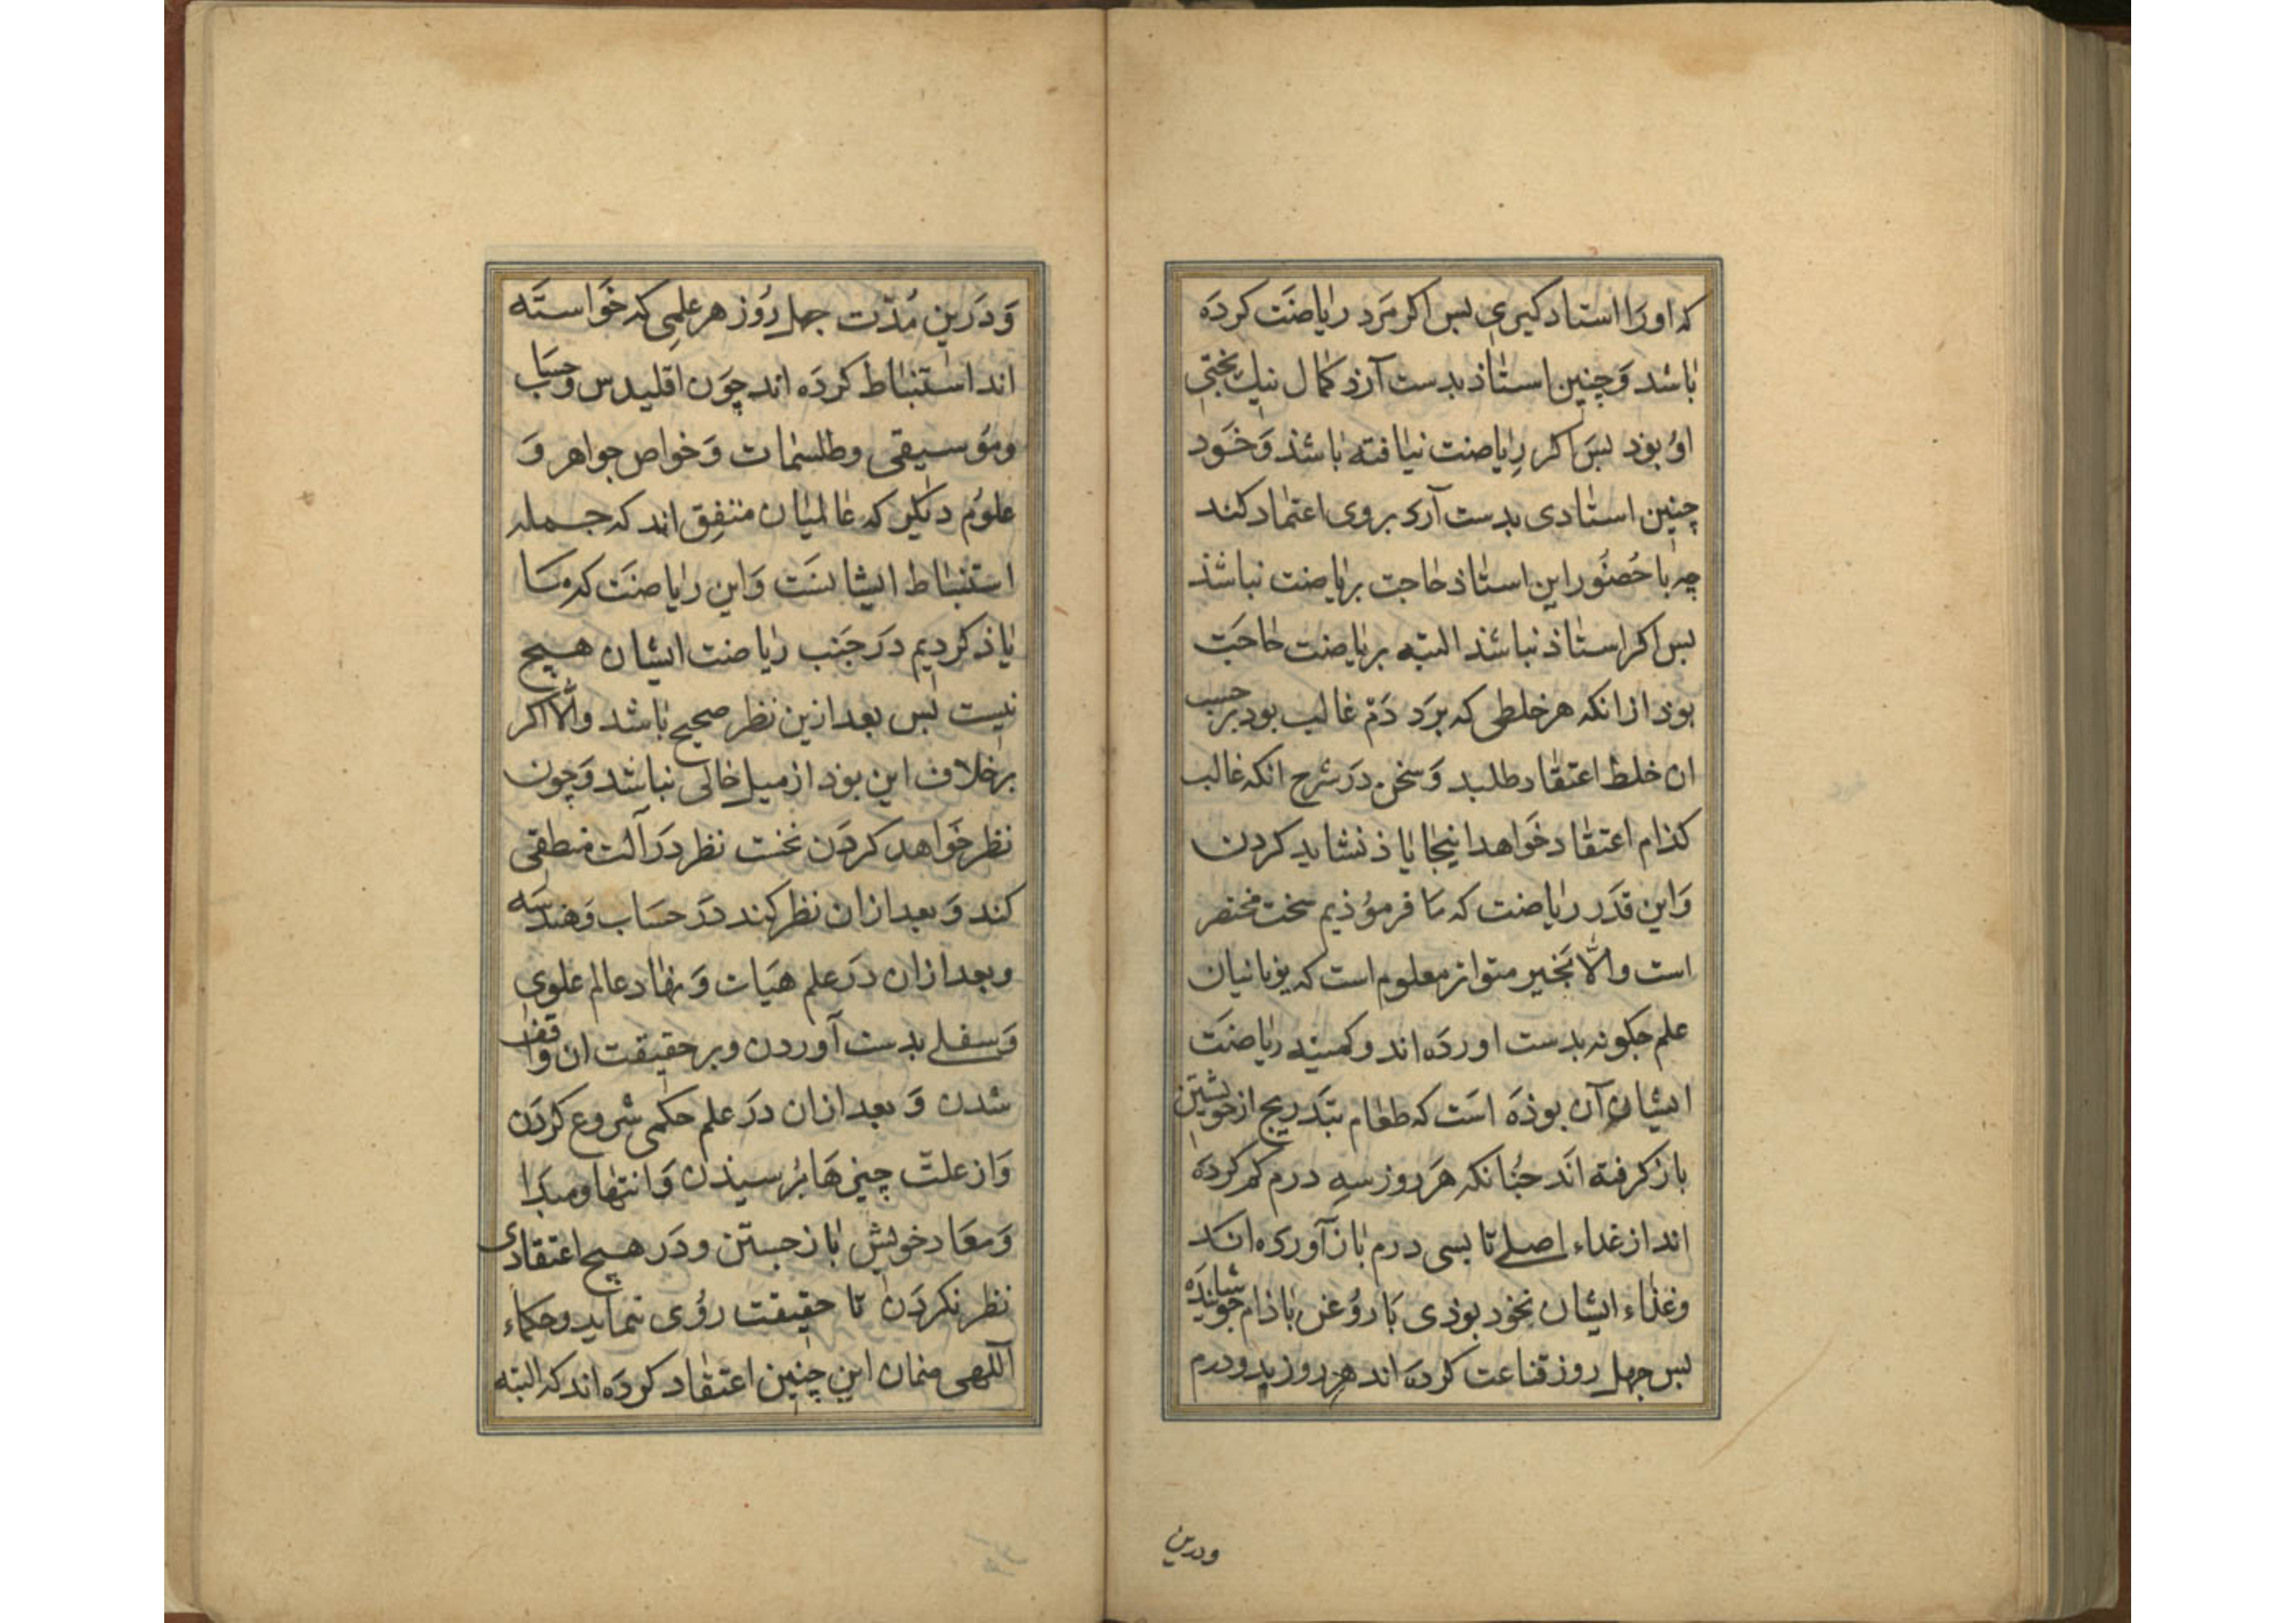 که اورا استاد کیری بس اکر مَرد ریاضَت کردَه
باشد وَچنین استاذ بدست آرد کمال نیك بختی
اوُ بوَد بسَ اکر رِیاضت نیافته باشذ وَخَود
چنین استادی بدست آرد بروی اعتماد کند
چه باحُضُور این استاذ حاجت بریاضت نباشذ
بس اکر استاذ نباشذ البته بریاضت حاجَت
بوَد ازانکه هرخلطی که برَد دَمْ غالب بود برحسب
ان خلط اعتقاد طلبد وَسخن دَرشرح انکه غالب
کذام اعتقاد خَواهد اینجا یاذ نشاید کردن
وَاین قدَر ریاضت که ما فرموُذیم سخت مختصر
است والّا بخبر متواتر معلوم است که یونانیان
علم جکونه بدست اوردَه اند وکمینه ریاضَت
ایشان آن بوذَه اسَت که طعام بتَدریج ازخویشتن
بازکرفته اندَ جُنانکه هَر روز سِه درم کم کردَه
اند از غداء اصلے تا بسی درم باز آورده اند
وغذاء ایشان نخود بوذی بَا روُغن باذام جوشانیدَه
بس جهل روز قناعت کردَه اند هر روز بدو درم
ودرین
وَدَرین مُدّت جهل رُوز هرعلمِی که خَواستَه
اند استنباط کردَه اند چوَن اقلیدس وحسَاب
وموُسیقی وطلسمات وَخواص جواهر وَ
علوُم دیکر که عالمیان متفِق اند که جمله
استنباط ایشانسَت وَاین ریاضَت که ما
یاذ کردیم دَرجَنب ریاضت ایشان هیچ
نیست بس بعد ازین نظر صحیح باشد والّا اکر
برخلاف این بوَد از میل خالی نباشد وَچون
نظر خَواهد کردَن نخست نظر دَرآلت منطقی
کند وَ بعد ازان نظر کند دَر حسَاب وَهندسَه
وبعد ازان دَر علم هیَات وَ نهاد عالم علوی
وَسفلے بدست آوردن وبرحقیقت ان واقف
شدن وَ بعد ازان دَر علم حکمی شروع کردَن
وَاز علّت چیزهَا بُرسیذن وَانتها ومبدَا
وَمعَاد خویش باز جستن ودَر هیچ اعتقادی
نظر نکردَن تا حقیقت رؤی نماید وحکماء
آللهی منمان این چنین اعتقاد کردَه اند که البته